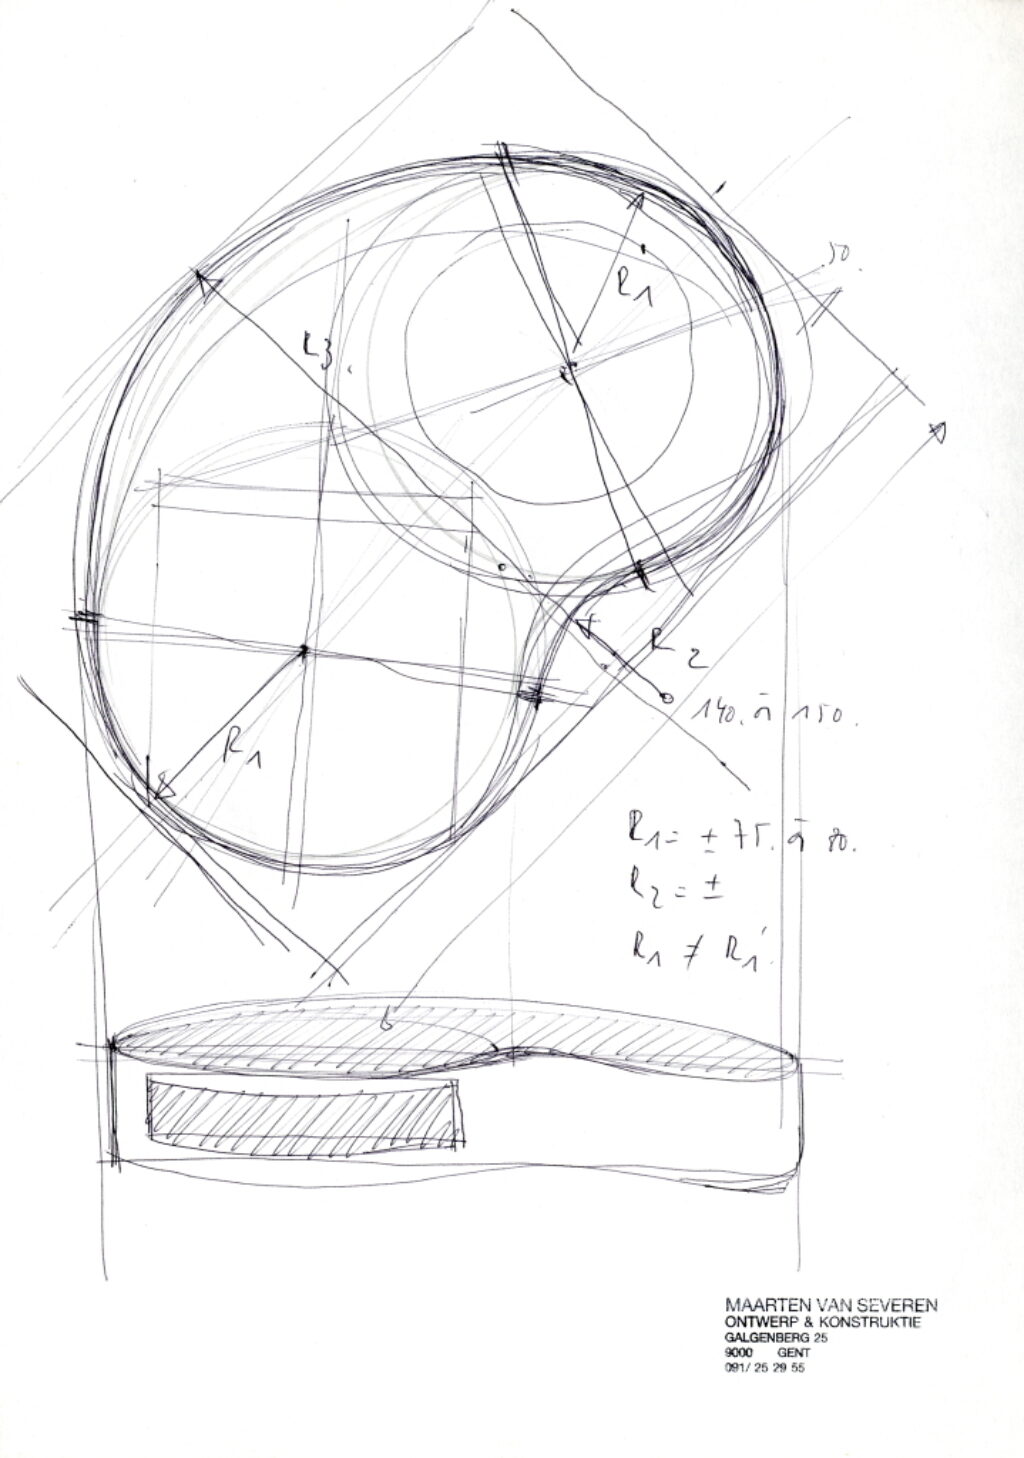 50.
R1
R3
R2
140. à 150.
R1
R1 = ± 75. à 80.
R2 = ±
R1 ≠ R1'
MAARTEN VAN SEVEREN
ONTWERP & KONSTRUKTIE
GALGENBERG 25
9000 GENT
091/ 25 29 55